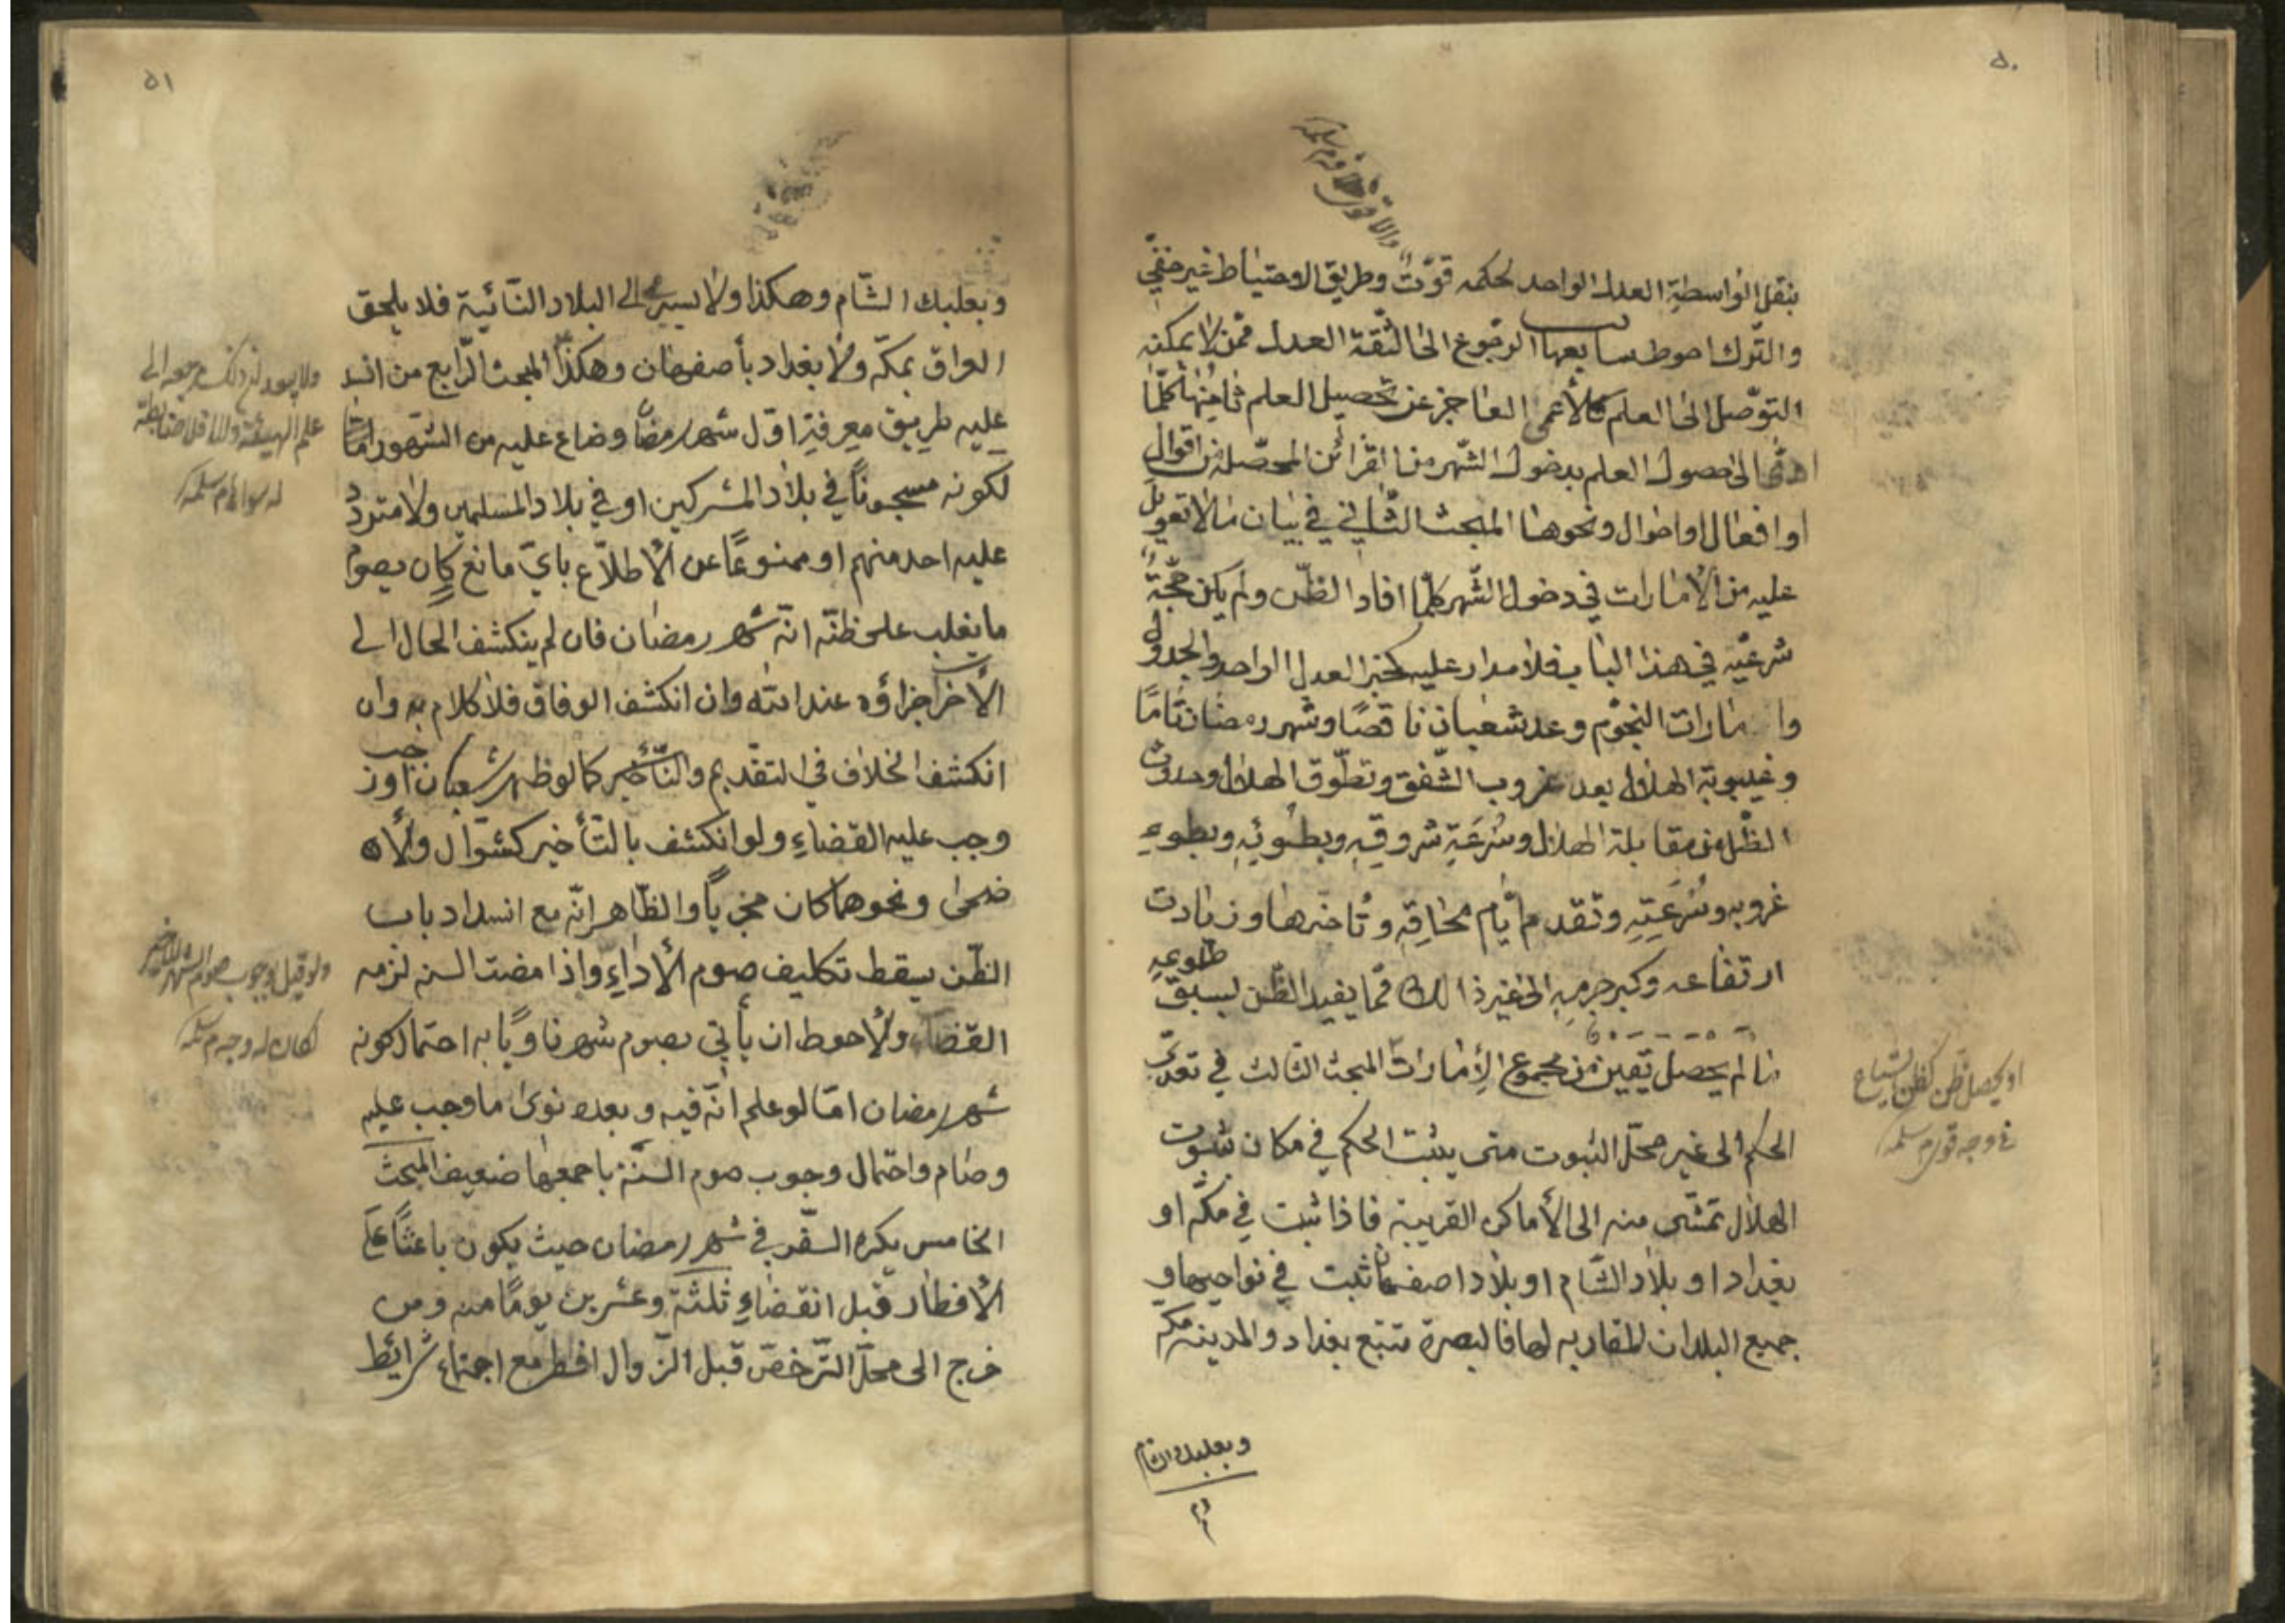 ٥٠
بنقل الواسطة العدل الواحد لحكمه قوّت وطريق الاحتياط غير خفيّ
والتّرك احوط سابعها الرّجوع الى الثّقة العدل ممّن لا يمكنه
التوصّل الى العلم كالأعمى العاجز عن تحصيل العلم ثامنها كلّما
ادّى الى حصول العلم بدخول الشّهر من القرائن المحصّلة من اقوال
او افعال او احوال ونحوها المبحث الثّاني في بيان ما لا تعويل
عليه من الأمارات في دخول الشّهر كلّما افاد الظّن ولم يكن حجّة
شرعيّه في هذا الباب فلا مدار عليه كخبر العدل الواحد والجدول
وامارات النجوم وعد شعبان ناقصًا وشهر رمضان تامًا
وغيبوبة الهلال بعد غروب الشّفق وتطّوق الهلال وحدوث
الظّل من مقابلة الهلال وسُرعَةِ شروقِه وبطوئِه وبطوءِ
غروبه وسُرعَتِهِ وتقدم ايّام محاقِهِ وتأخرها وزيادت
ارتفاعه وكبر جرمِهِ الى غير ذالك ممّا يفيد الظّن لسبق طلوعه
ما لم يحصل يقين من مجموع الأمارات المبحث الثالث في تعدّى
الحكم الى غير محلّ الثبوت متى يثبت الحكم في مكان بثبوت
الهلال تمشّى منه الى الأماكن القريبة فاذا ثبت في مكّه او
بغداد او بلاد الشّام او بلاد اصفهان ثبت في نواحيها و
جميع البلدان المقاربه لها فالبصرة تتبع بغداد والمدينة مكه
وبعلبك الشام
او يحصل ظن كظن الشياع
في وجه قوى م سلمه
٥١
وبعلبك الشّام وهكذا ولا يسرى الى البلاد النّائية فلا يلحق
العراق بمكّه ولا بغداد بأصفهان وهكذا المبحث الرّابع من انسد
عليه طريق معرفة اوّل شهر رمضان وضاع عليه من الشهور امّا
لكونه مسجونًا في بلاد المشركين او في بلاد المسلمين ولا متردّد
عليه احد منهم او ممنوعًا عن الأطلاّع بايّ مانع كان يصوم
ما يغلب على ظنّه انّه شهر رمضان فان لم ينكشف الحال الى
الأخر اجزاؤه عند اللّه وان انكشف الوفاق فلا كلام به وان
انكشف الخلاف في التقديم والتّأخير كما لو ظهر شعبان او رجب
وجب عليه القضاءِ ولو انكشف بالتّأخير كشوّال ولأن
ضحى ونحوهما كان مجزيًا والظّاهر انّه مع انسداد باب
الظّن يسقط تكليف صوم الأداءِ واذا مضت السنه لزمه
القضاء ولأحوط ان يأتى بصوم شهر ناويًا به احتمال كونه
شهر رمضان امّا لو علم انّه فيه وبعده نوى ما وجب عليه
وصام واحتمال وجوب صوم السّنة باجمعها ضعيف المبحث
الخامس يكره السّفر في شهر رمضان حيث يكون باعثًا على
الأفطار قبل انقضاءِ ثلثة وعشرين يومًا منه ومن
خرج الى محلّ التّرخصّ قبل الزّوال افطر مع اجتماع شرائط
علم الهيئة
ولو قيل بوجوب صوم الشهر الاخير
لكان له وجه م سلمه